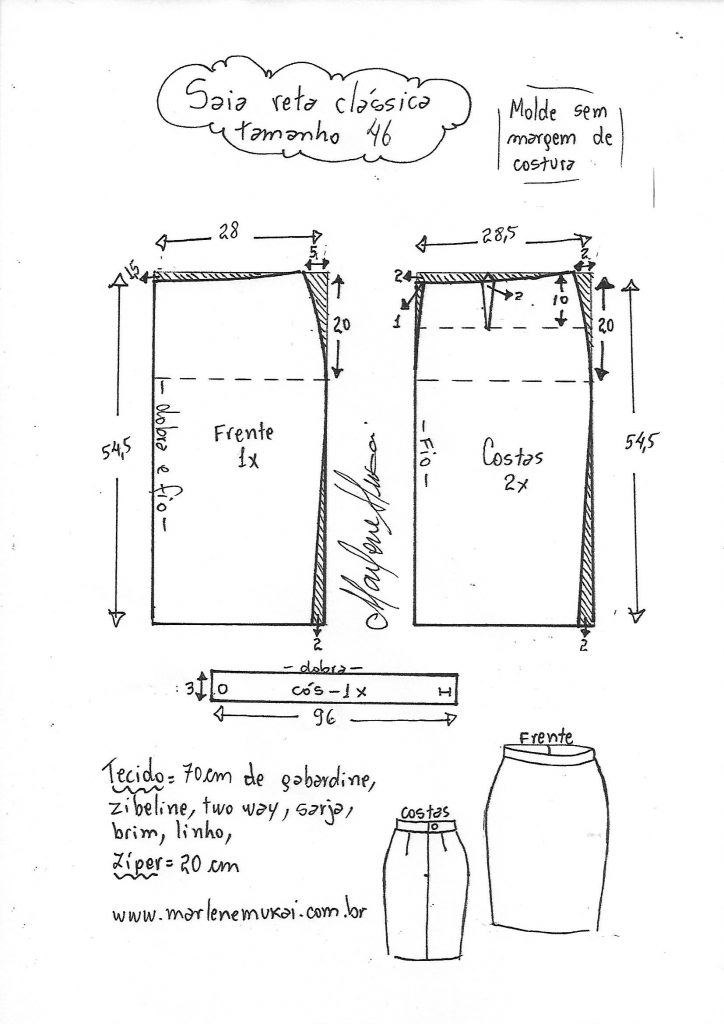 Saia reta clássica
tamanho 46
Molde sem
margem de
costura
28
5
1,5
20
54,5
- dobra e fio -
Frente
1x
2
Marlene Mukai
28,5
2
2
1
2
10
20
54,5
- Fio -
Costas
2x
2
- dobra -
3
cós - 1x
96
Tecido = 70cm de gabardine,
zibeline, two way, sarja,
brim, linho,
Zíper = 20 cm
www.marlenemukai.com.br
costas
Frente